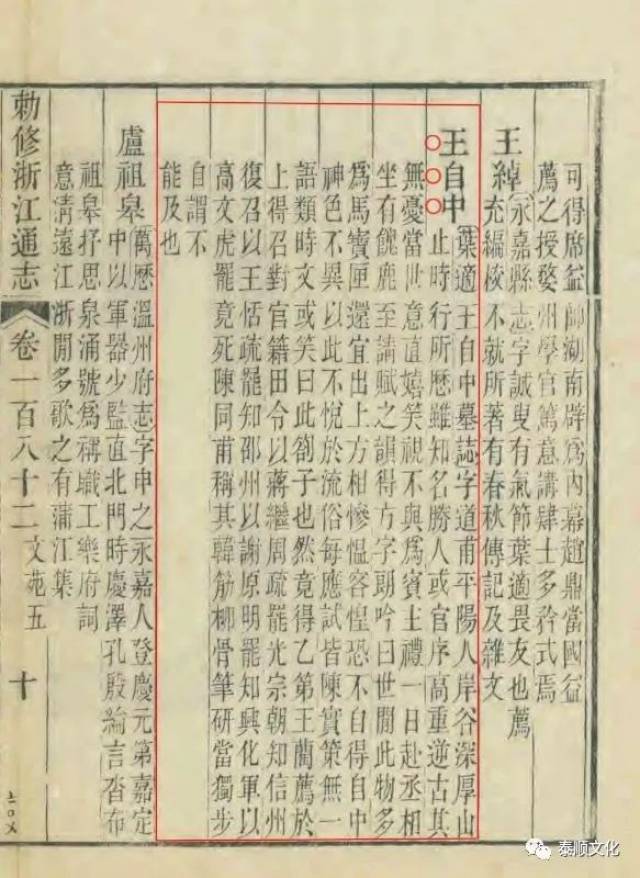 可得席益帥湖南辟爲內幕趙鼎當國益
薦之授婺州學官篤意講肄士多矜式焉
王綽 永嘉縣志字誠叟有氣節葉適畏友也薦
充編校不就所著有春秋傳記及雜文
王自中 葉適王自中墓誌字道甫平陽人岸谷深厚山
止時行所歷雖知名勝人或官序高重逆古其
無憂當世意直嬉笑視不與爲賓主禮一日赴丞相
坐有餽鹿至請賦之韻得方字朗吟曰世閒此物多
爲馬寶匣還宜出上方相慘慍容惶恐不自得自中
神色不異以此不悅於流俗每應試皆陳實策無一
語類時文或笑曰此劄子也然竟得乙第王藺薦於
上得召對官籍田令以蔣繼周疏罷光宗朝知信州
復召以王恬疏罷知邵州以謝原明罷知興化軍以
高文虎罷竟死陳同甫稱其韓筋柳骨筆研當獨步
自謂不
能及也
盧祖皋 萬歷溫州府志字申之永嘉人登慶元第嘉定
中以軍器少監直北門時慶澤孔殷綸言沓布
祖皋抒思泉涌號爲稱職工樂府詞
意淸遠江浙閒多歌之有蒲江集
勅修浙江通志 卷一百八十二 文苑五 十
泰顺文化